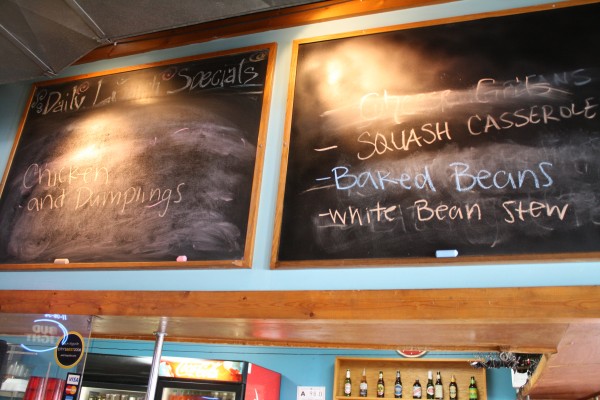 Daily Lunch Specials
Chicken
and Dumplings
Cheese Grits
- SQUASH CASSEROLE
- Baked Beans
- white Bean Stew
VISA
A